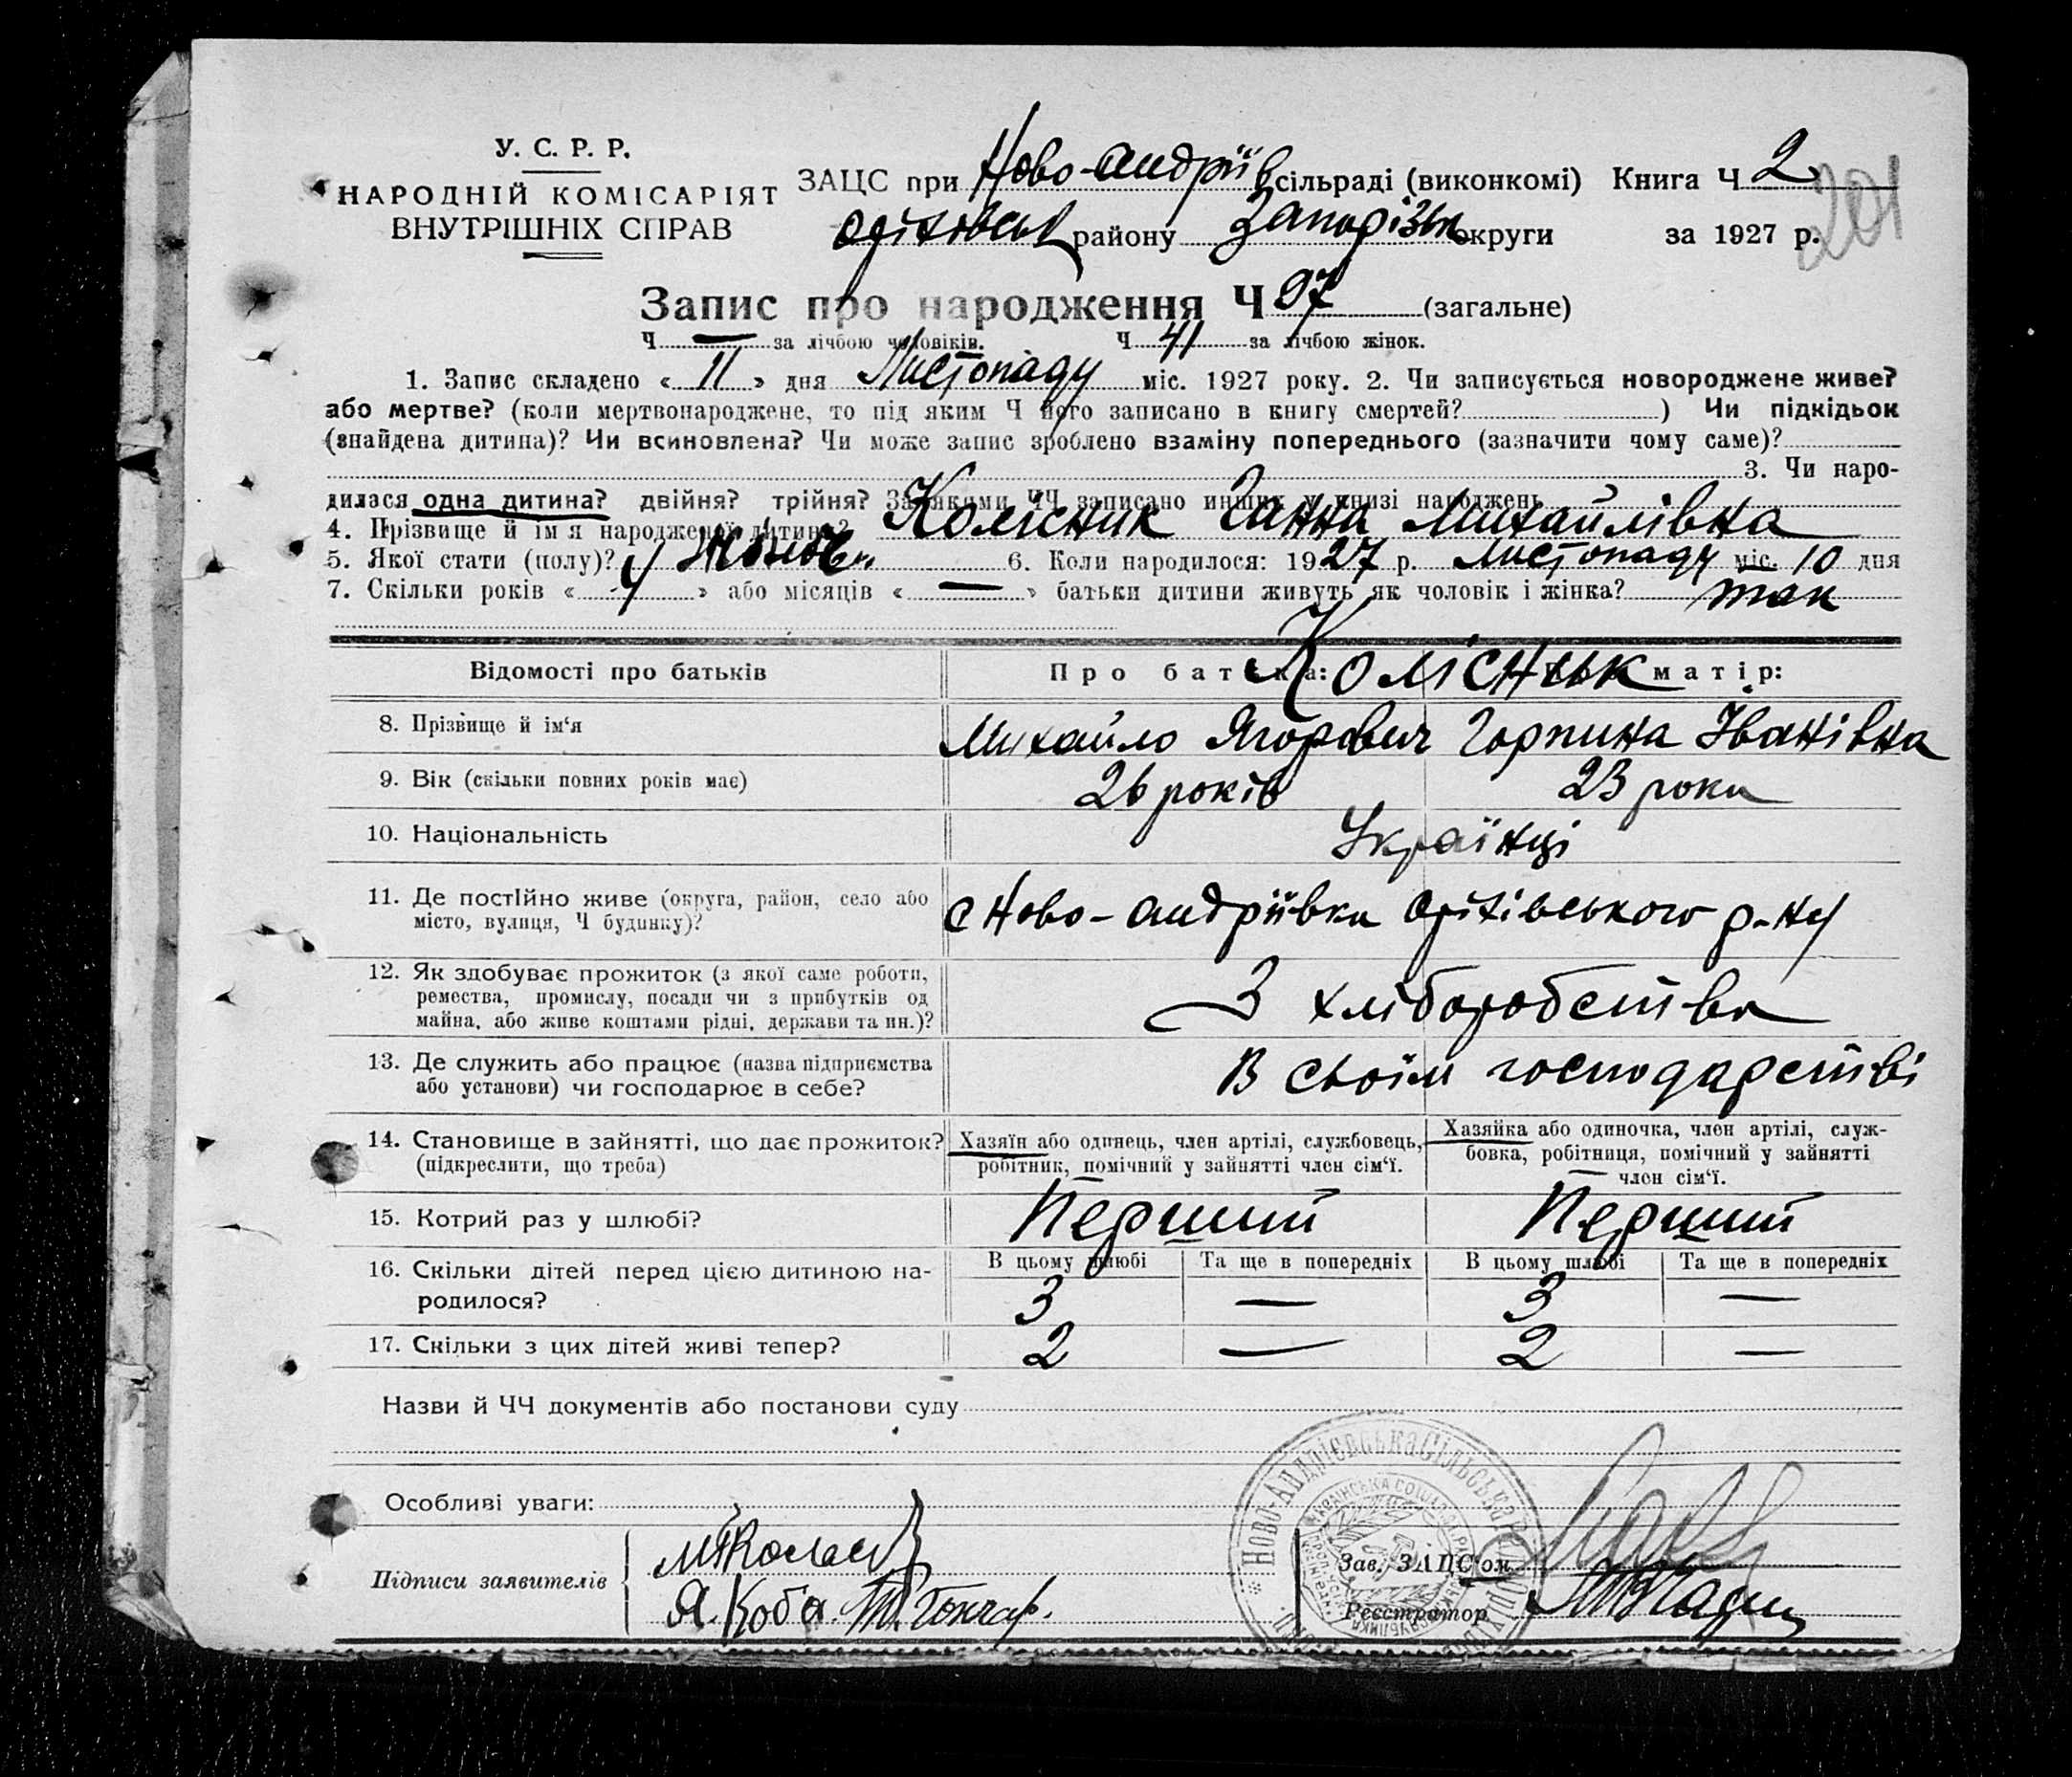 У. С. Р. Р.
НАРОДНІЙ КОМІСАРІЯТ
ВНУТРІШНІХ СПРАВ
ЗАЦС при Ново-Андріїв сільраді (виконкомі) Книга Ч 2
201
Оріхівськ району Запорізьк округи за 1927 р.
Запис про народження Ч 97 (загальне)
Ч — за лічбою чоловіків. Ч 41 за лічбою жінок.
1. Запис складено « 11 » дня Листопаду міс. 1927 року. 2. Чи записується новороджене живе?
або мертве? (коли мертвонароджене, то під яким Ч його записано в книгу смертей? ) Чи підкідьок
(знайдена дитина)? Чи всиновлена? Чи може запис зроблено взаміну попереднього (зазначити чому саме)?
3. Чи наро-
дилася одна дитина? двійня? трійня? За якими ЧЧ записано инших у книзі народжень
4. Прізвище й ім'я народженої дитини? Колісник Ганна Михайлівна
5. Якої стати (полу)? жіноч. 6. Коли народилося: 1927 р. Листопаду міс. 10 дня
7. Скільки років « » або місяців « — » батьки дитини живуть як чоловік і жінка? так
Відомості про батьків Про батька: матір:
Колісник
8. Прізвище й ім'я Михайло Ягорович Горпина Іванівна
9. Вік (скільки повних років має) 26 років 23 роки
10. Національність Українці
11. Де постійно живе (округа, район, село або
місто, вулиця, Ч будинку)? с Ново-Андріївки Оріхівського р-ну
12. Як здобуває прожиток (з якої саме роботи,
ремества, промислу, посади чи з прибутків од
майна, або живе коштами рідні, держави та ин.)? З хліборобства
13. Де служить або працює (назва підприємства
або установи) чи господарює в себе? В своїм господарстві
14. Становище в зайнятті, що дає прожиток?
(підкреслити, що треба)
Хазяїн або одинець, член артілі, службовець,
робітник, помічний у зайнятті член сім'ї.
Хазяйка або одиночка, член артілі, служ-
бовка, робітниця, помічний у зайнятті
член сім'ї.
15. Котрий раз у шлюбі? Перший Перший
16. Скільки дітей перед цією дитиною на-
родилося?
В цьому шлюбі Та ще в попередніх В цьому шлюбі Та ще в попередніх
3 — 3 —
17. Скільки з цих дітей живі тепер? 2 — 2 —
Назви й ЧЧ документів або постанови суду
Особливі уваги:
Підписи заявителів
Я. Коба. Т. Гончар.
Зав. ЗАЦС'ом
Реєстратор